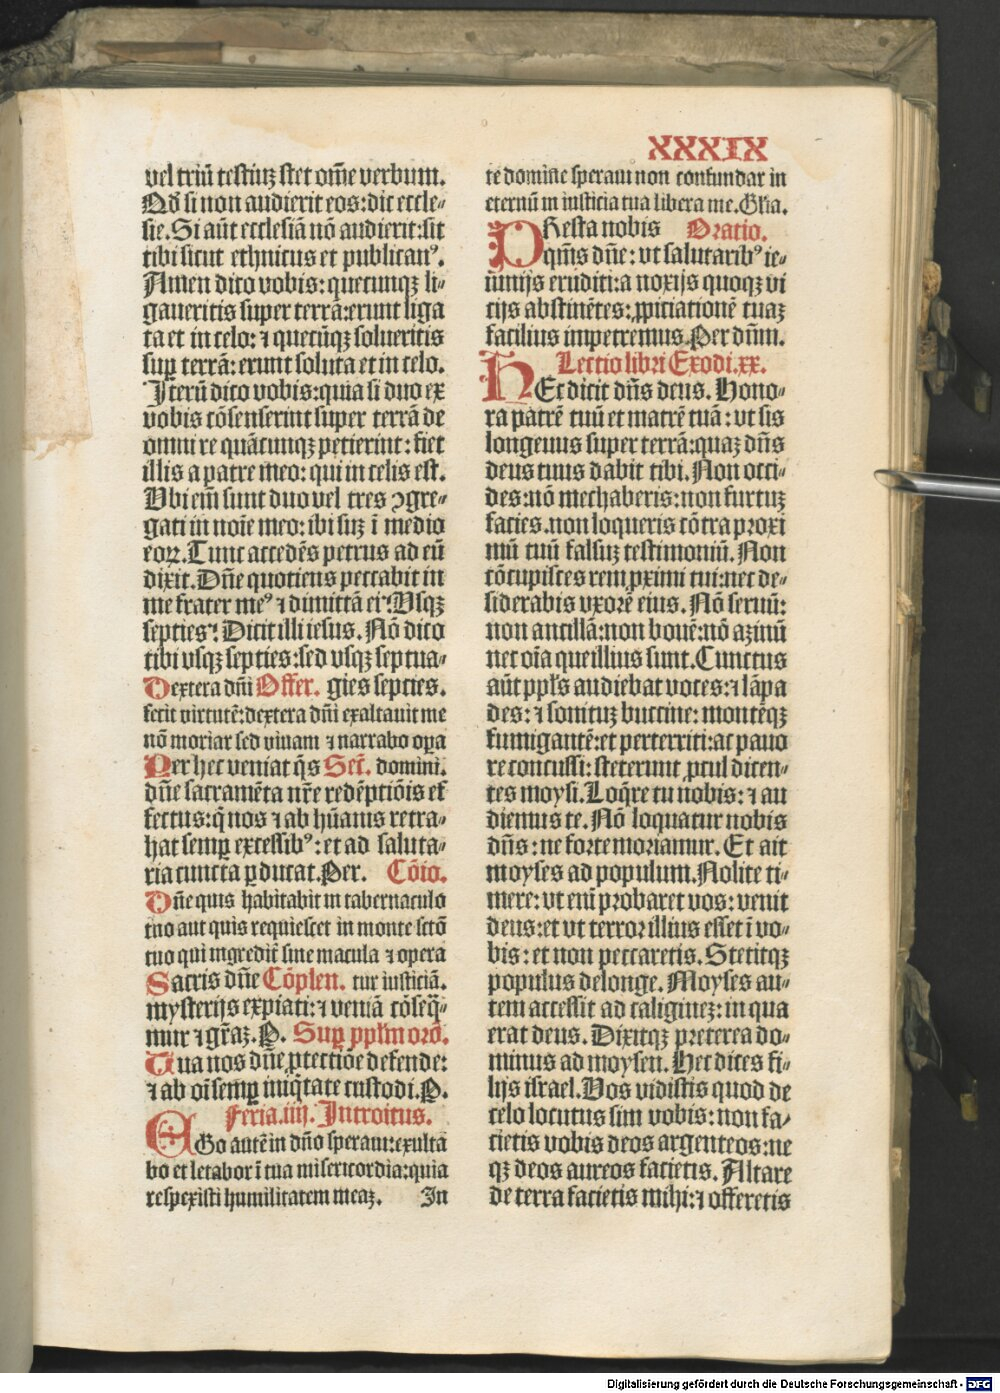 XXXIX
vel triū testiuꝫ stet om̄e verbum.
Ꝙð si non audierit eos: dic eccle-
sie. Si aūt ecclesiā nō audierit: sit
tibi sicut ethnicus et publicanꝰ.
Amen dico vobis: quecunqꝫ li-
gaueritis super terrā: erunt liga
ta et in celo: ⁊ quecūqꝫ solueritis
suꝑ terrā: erunt soluta et in celo.
Iterū dico vobis: quia si duo ex
vobis cōsenserint super terrā de
omni re quācunqꝫ petierint: fiet
illis a patre meo: qui in celis est.
Vbi em̄ sunt duo vel tres ꝯgre-
gati in noīe meo: ibi suꝫ ī medio
eoꝝ. Tunc accedēs petrus ad eū
dixit. Dn̄e quotiens peccabit in
me frater meꝰ ⁊ dimittā ei? Vsqꝫ
septies? Dicit illi iesus. Nō dico
tibi vsqꝫ septies: sed vsqꝫ septua-
Dextera dn̄i Offer. gies septies.
fecit virtutē: dextera dn̄i exaltauit me
nō moriar sed viuam ⁊ narrabo oꝑa
Per hec veniat q̄s Secͬ. domini.
dn̄e sacramēta nr̄e redēptiōis ef
fectus: q̄ nos ⁊ ab hūanis retra-
hat semꝑ excessibꝰ: et ad saluta-
ria cuncta ꝑducat. Per. Cōio.
Dn̄e quis habitabit in tabernaculo
tuo aut quis requiescet in monte sctō
tuo qui ingredit̄ sine macula ⁊ opera
Sacris dn̄e Cōplen. tur iusticiā.
mysterijs expiati: ⁊ veniā cōseq̄-
mur ⁊ gr̄aꝫ. P. Suꝑ ppl̄m orō.
Tua nos dn̄e ꝓtectiōe defende:
⁊ ab oī semꝑ iniq̄tate custodi. P.
Feria.iiij. Introitus.
EGo autē in dn̄o speraui: exulta
bo et letabor ī tua misericordia: quia
respexisti humilitatem meaꝫ. In
te domine speraui non confundar in
eternū in iusticia tua libera me. Gl̄ia.
PResta nobis Oratio.
qm̄s dn̄e: vt salutaribꝰ ie-
iunijs eruditi: a noxijs quoqꝫ vi
cijs abstinētes: ꝓpiciationē tuaꝫ
facilius impetremus. Per dn̄m.
Lectio libri Exodi.xx.
HEc dicit dn̄s deus. Hono-
ra patrē tuū et matrē tuā: vt sis
longeuus super terrā: quaꝫ dn̄s
deus tuus dabit tibi. Non occi-
des: nō mechaberis: non furtuꝫ
facies. non loqueris cōtra proxi
mū tuū falsuꝫ testimoniū. Non
cōcupisces rem ꝓximi tui: nec de-
siderabis vxorē eius. Nō seruū:
non ancillā: non bouē: nō azinū
nec oīa que illius sunt. Cunctus
aūt ppl̄s audiebat voces: ⁊ lāpa
des: ⁊ sonituꝫ buccine: montēqꝫ
fumigantē: et perterriti: ac pauo
re concussi: steterunt ꝓcul dicen-
tes moysi. Loq̄re tu nobis: ⁊ au
diemus te. Nō loquatur nobis
dn̄s: ne forte moriamur. Et ait
moyses ad populum. Nolite ti-
mere: vt eni̅ probaret vos: venit
deus: et vt terror illius esset ī vo-
bis: et non peccaretis. Stetitqꝫ
populus de longe. Moyses au-
tem accessit ad caligineꝫ: in qua
erat deus. Dixitqꝫ preterea do-
minus ad moysen. Hec dices fi-
lijs israel. Vos vidistis quod de
celo locutus sim vobis: non fa-
cietis vobis deos argenteos: ne
qꝫ deos aureos facietis. Altare
de terra facietis mihi: ⁊ offeretis
Digitalisierung gefördert durch die Deutsche Forschungsgemeinschaft - DFG